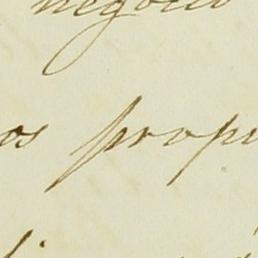 negocio
os propi